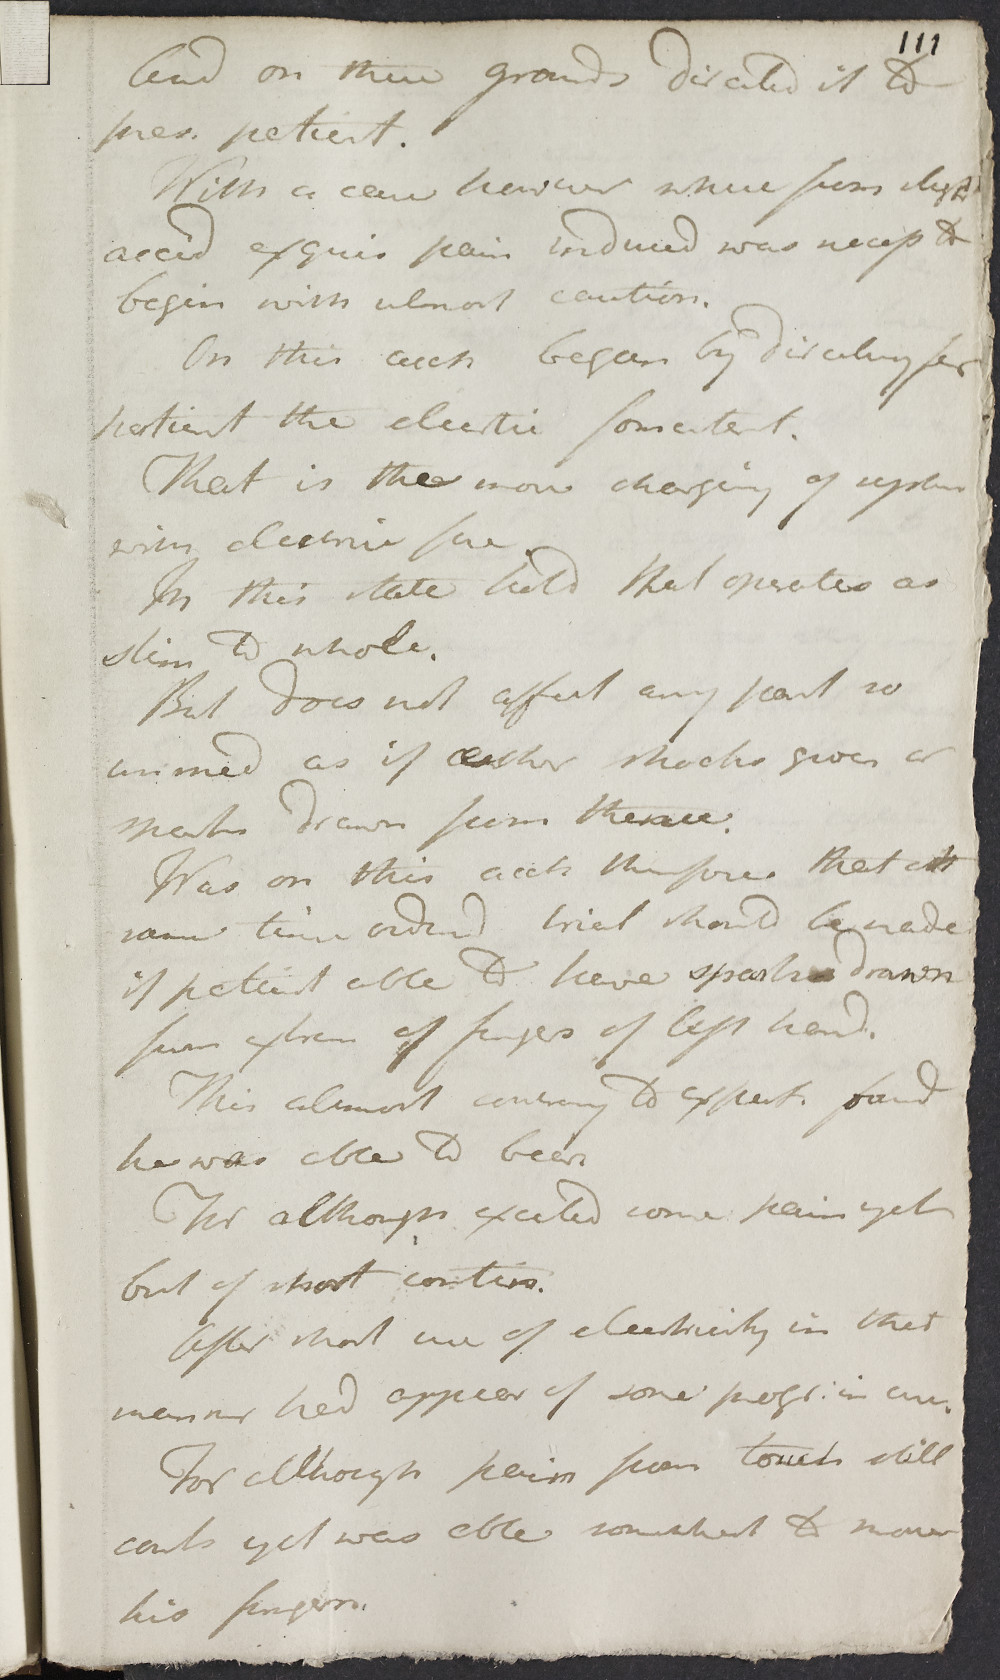 111
And on these grounds directed it to
pres. patient.
With a case however where from slight
accid exquis pain induced was necess to
begin with utmost caution.
On this acct began by directing for
patient the electric fomentat.
That is the mere charging of system
with electric fire.
In this state held that operates as
stim to whole.
But does not affect any part so
immed as if either shocks given or
sparks drawn from thence.
Was on this acct therefore that att
same time orderd trial should be made
if patient able to have sparks drawn
from extrem of fingers of left hand.
This almost contrary to expect. found
he was able to bear
For although excited some pain yet
but of short contin.
After short use of electricity in that
manner had appear of some progr. in cure.
For although pain from touch still
cont yet was able somewhat to move
his fingers.